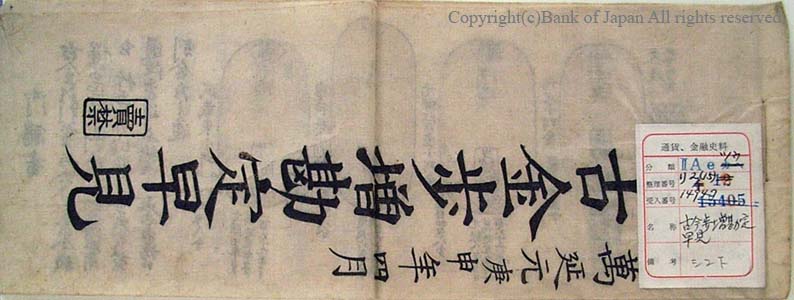 Copyright(c)Bank of Japan All rights reserved
古金歩増勘定早見
禁賣
萬延元庚申年四月
通貨、金融史料
分類 ⅡAe
整理番号
受入番号 15405
名称 古今歩増勘定
早見
備考